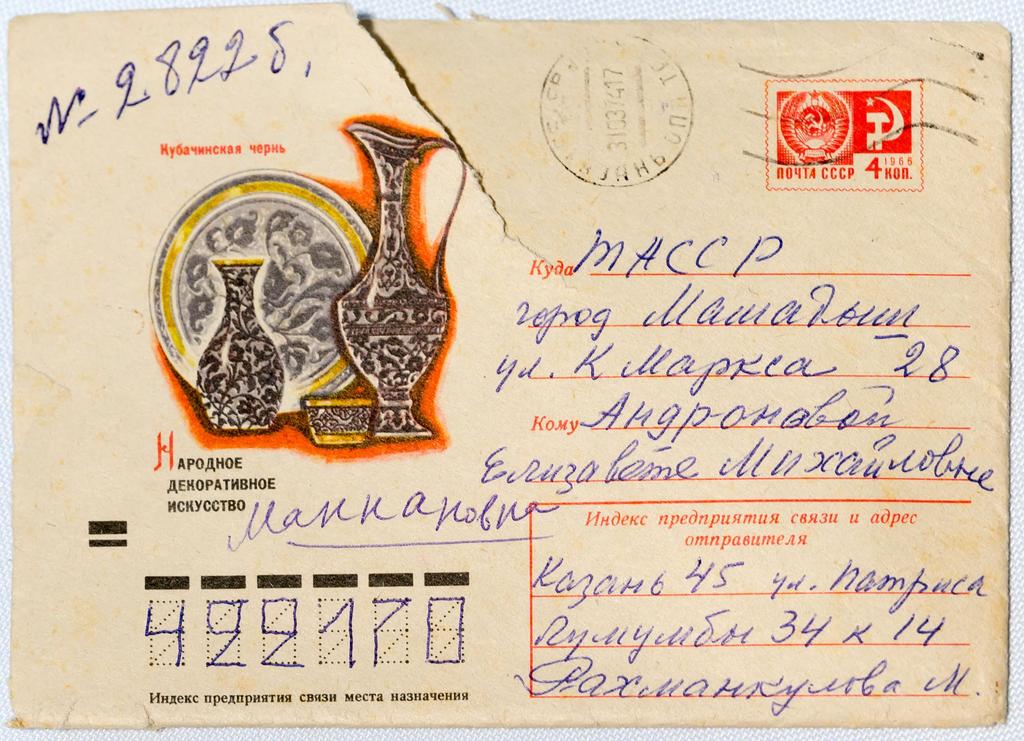 № 2822 б,
Кубачинская чернь
31 03 74 17
ПОЧТА СССР 4 КОП.
1966
Куда ТАССР
город Мамадыш
ул. К Маркса 28
Кому Андроновой
Елизавете Михайловне
НАРОДНОЕ
ДЕКОРАТИВНОЕ
ИСКУССТВО
Индекс предприятия связи и адрес
отправителя
Казань 45 ул. Патриса
Лумумбы 34 к 14
Рахманкулова М.
422170
Индекс предприятия связи места назначения